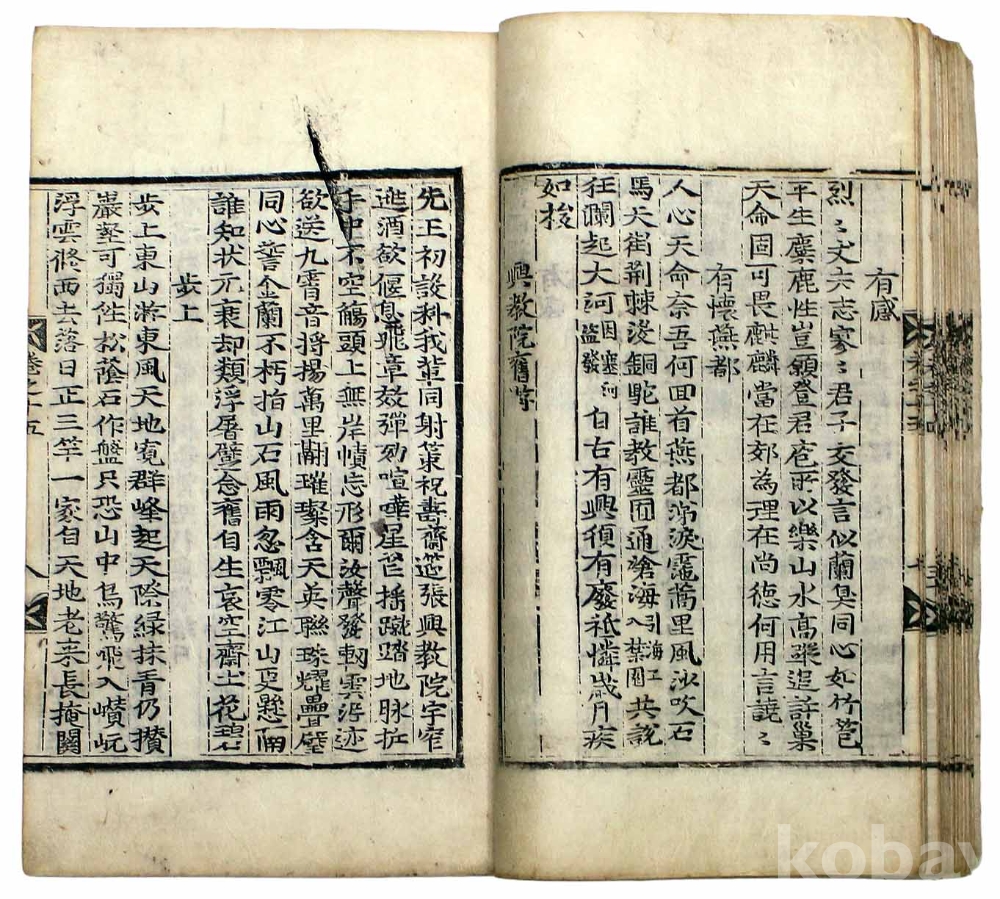 有感
烈〻丈夫志寥〻君子交發言似蘭臭同心如竹苞
平生麋鹿性豈願登君庖所以樂山水高蹤追許巢
天命固可畏麒麟當在郊為理在尚德何用言譊〻
有懷燕都
人心天命奈吾何回首燕都涕淚霑萬里風沙吹石
馬天街荆棘沒銅駝誰教靈囿通滄海引海江入禁園共說
狂瀾起大河因塞河盜發自古有興須有廢祗憐歲月疾
如梭
興教院舊
先王初設科我輩同射策祝壽齋筵張興教院宇窄
逃酒欲偃息飛章效彈劾喧嘩星芒搖蹴踏地脉
手中不空觴頭上無岸幘忘形爾汝聲發軔雲泥迹
欲送九霄音將揚萬里翮璀璨含天英聯珠耀疊璧
同心誓金蘭不朽指山石風雨忽飄零江山更懸隔
誰知狀元來却類浮屠壁念舊自生哀空齋土花碧
步上
步上東山游東風天地寬群峰起天際綠抹青仍攢
巖壑可獨往松蔭石作盤只恐山中鳥驚飛入巑岏
浮雲倏西去落日正三竿一家自天地老來長掩關
卷之十五
八
kobay